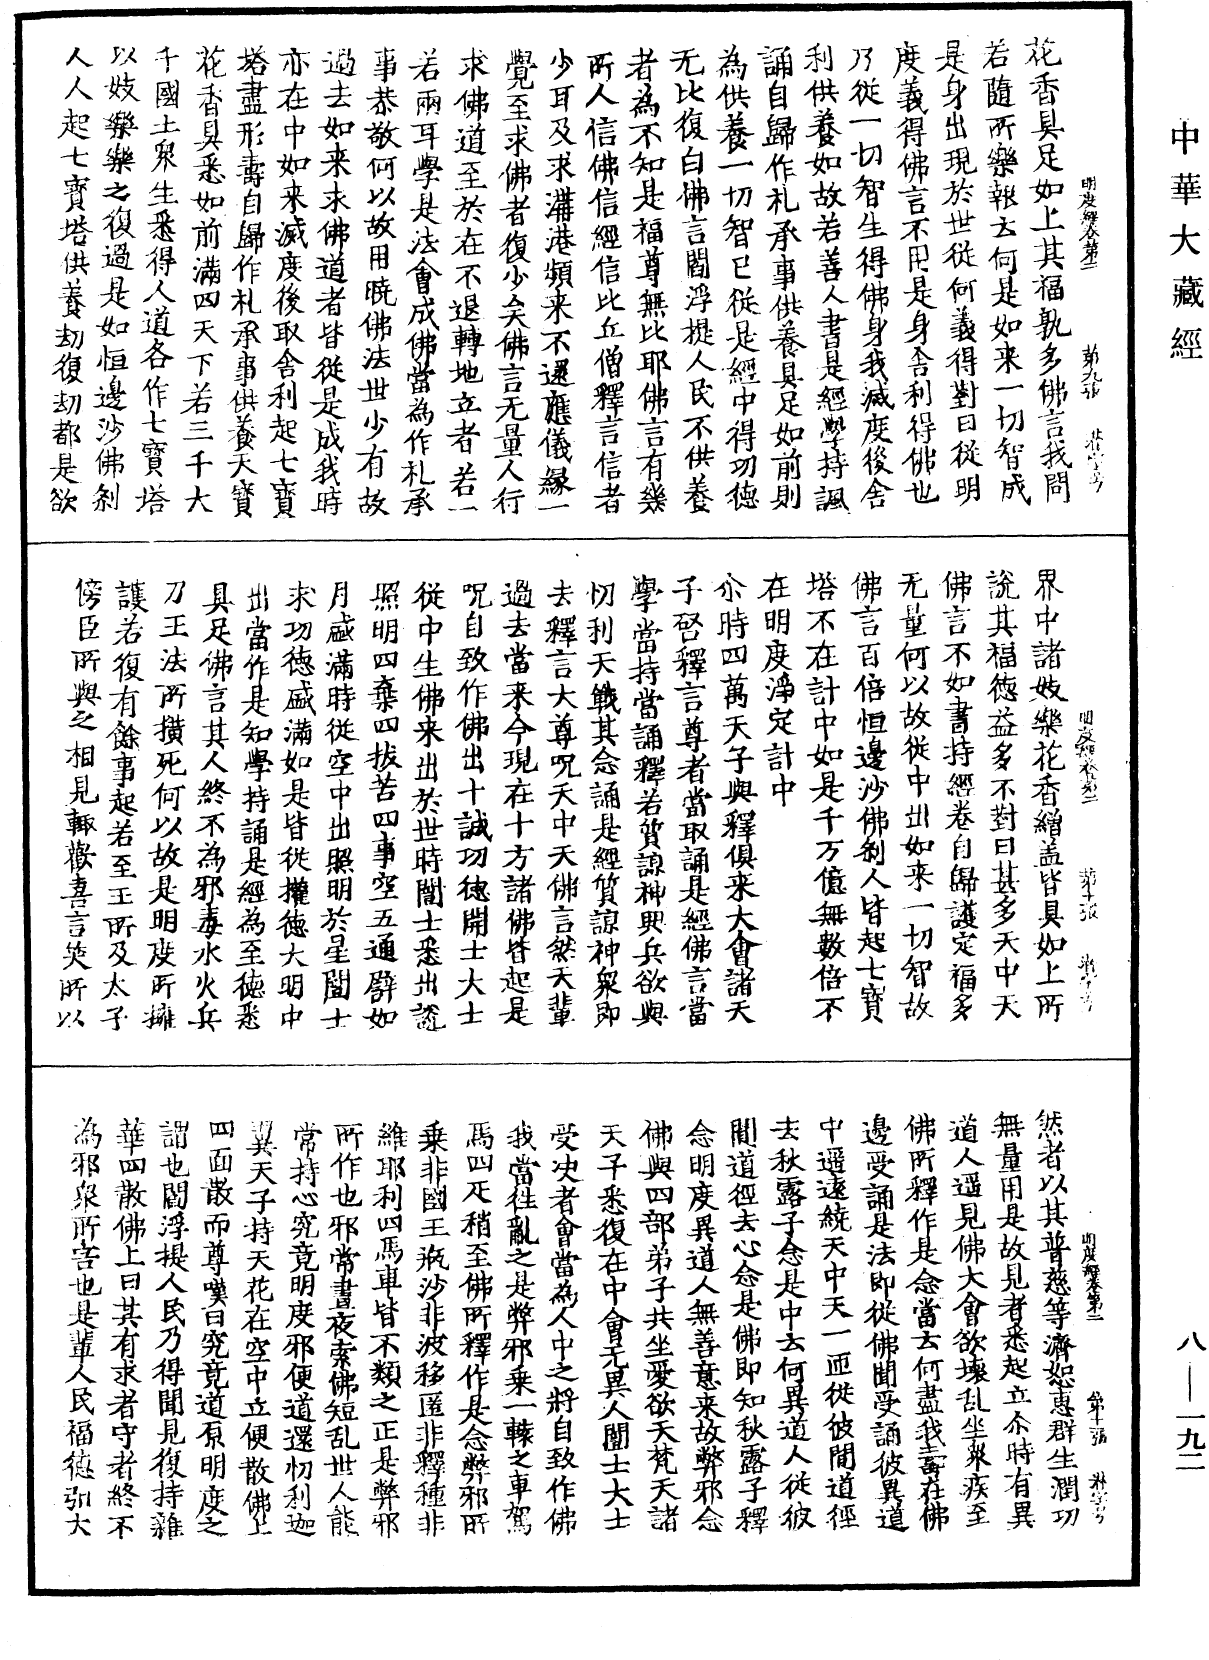 中華大藏經
明度經卷第二　第九張
花香具足如上其福孰多佛言我問
若隨所樂報去何是如来一切智成
是身出現於世從何義得對曰從明
度義得佛言不用是身舍利得佛也
乃從一切智生得佛身我滅度後舍
利供養如故若善人書是經學持諷
誦自歸作礼承事供養具足如前則
為供養一切智已從是經中得功德
无比復白佛言閻浮提人民不供養
者為不知是福尊無比耶佛言有幾
所人信佛信經信比丘僧釋言信者
少耳及求溝港頻来不還應儀緣一
覺至求佛者復少矣佛言无量人行
求佛道至於在不退轉地立者若一
若兩耳學是法會成佛當為作礼承
事恭敬何以故用曉佛法世少有故
過去如来求佛道者皆從是成我時
亦在中如来滅度後取舍利起七寶
塔盡形壽自歸作礼承事供養天寶
花香具悉如前滿四天下若三千大
千國土衆生悉得人道各作七寶塔
以妓樂樂之復過是如恒邊沙佛刹
人人起七寶塔供養劫復劫都是欲
明度經卷第二　第十張
界中諸妓樂花香繒盖皆具如上所
說其福德益多不對曰甚多天中天
佛言不如書持經卷自歸護定福多
无量何以故從中出如来一切智故
佛言百倍恒邊沙佛刹人皆起七寶
塔不在計中如是千万億無數倍不
在明度淨定計中
尒時四萬天子與釋俱来大會諸天
子啓釋言尊者當取誦是經佛言當
學當持當誦釋若質諒神興兵欲與
忉利天戰其念誦是經質諒神衆即
去釋言大尊呪天中天佛言然天輩
過去當来今現在十方諸佛皆起是
呪自致作佛出十誡功德開士大士
從中生佛来出於世時闓士悉出說
照明四棄四拔苦四事空五通譬如
月盛滿時從空中出照明於星闓士
求功德盛滿如是皆從攉德大明中
出當作是知學持誦是經為至德悉
具足佛言其人終不為邪毒水火兵
刀王法所撗死何以故是明度所擁
護若復有餘事起若至王所及太子
傍臣所與之相見輙歡喜言笑所以
明度經卷第二　第十一張
然者以其普慈等濟恕惠群生潤功
無量用是故見者悉起立尒時有異
道人遥見佛大會欲壞乱坐衆疾至
佛所釋作是念當去何盡我壽在佛
邊受誦是法即從佛聞受誦彼異道
中遥遠繞天中天一迊從彼間道徑
去秋露子念是中去何異道人從彼
間道徑去心念是佛即知秋露子釋
念明度異道人無善意来故弊邪念
佛與四部弟子共坐愛欲天梵天諸
天子悉復在中會无異人闓士大士
受决者會當為人中之將自致作佛
我當往亂之是弊邪乗一轅之車駕
馬四疋稍至佛所釋作是念弊邪所
乗非國王瓶沙非波移匿非釋種非
維耶利四馬車皆不類之正是弊邪
所作也邪常晝夜索佛短乱世人能
常持心究竟明度邪便道還忉利迦
翼天子持天花在空中立便散佛上
四面散而尊嘆曰究竟道原明度之
謂也閻浮提人民乃得聞見復持雜
華四散佛上曰其有求者守者終不
為邪衆所害也是輩人民福德弘大
八—一九二